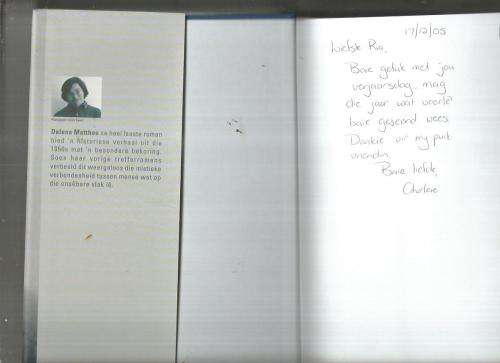 Dalene Matthee se heel laaste roman
bied 'n historiese verhaal uit die
1950s met 'n besondere bekoring.
Soos haar vorige trefferromans
verbeeld dit weergaloos die mistieke
verbondenheid tussen mense wat op
die onsigbare vlak lê.
17/12/05
Liefste Ria,
Baie geluk met jou
verjaarsdag mag
die jaar wat voorlê
baie geseënd wees.
Dankie vir my
vriendin
Baie liefde,
Charlene